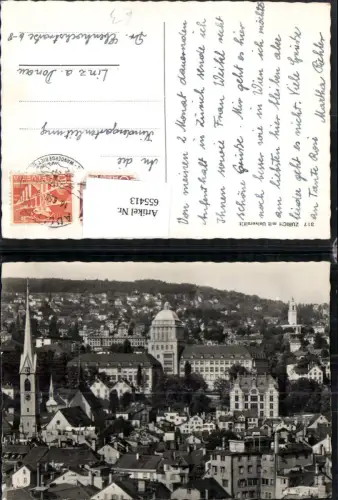 Von meinen 2 Monat dauernden
Aufenthalt in Zürich sende ich
Ihnen sowie Frau Weikel recht
schöne Grüße. Mir geht es hier
noch besser wie in Wien ich möchte
am liebsten hier bleiben aber
leider geht es nicht. Viele Grüße
an Tante Rosi
Martha
An die
Kindergartenleitung
Linz a. Donau
Artikel Nr.
655413
317 ZÜRICH mit Universität